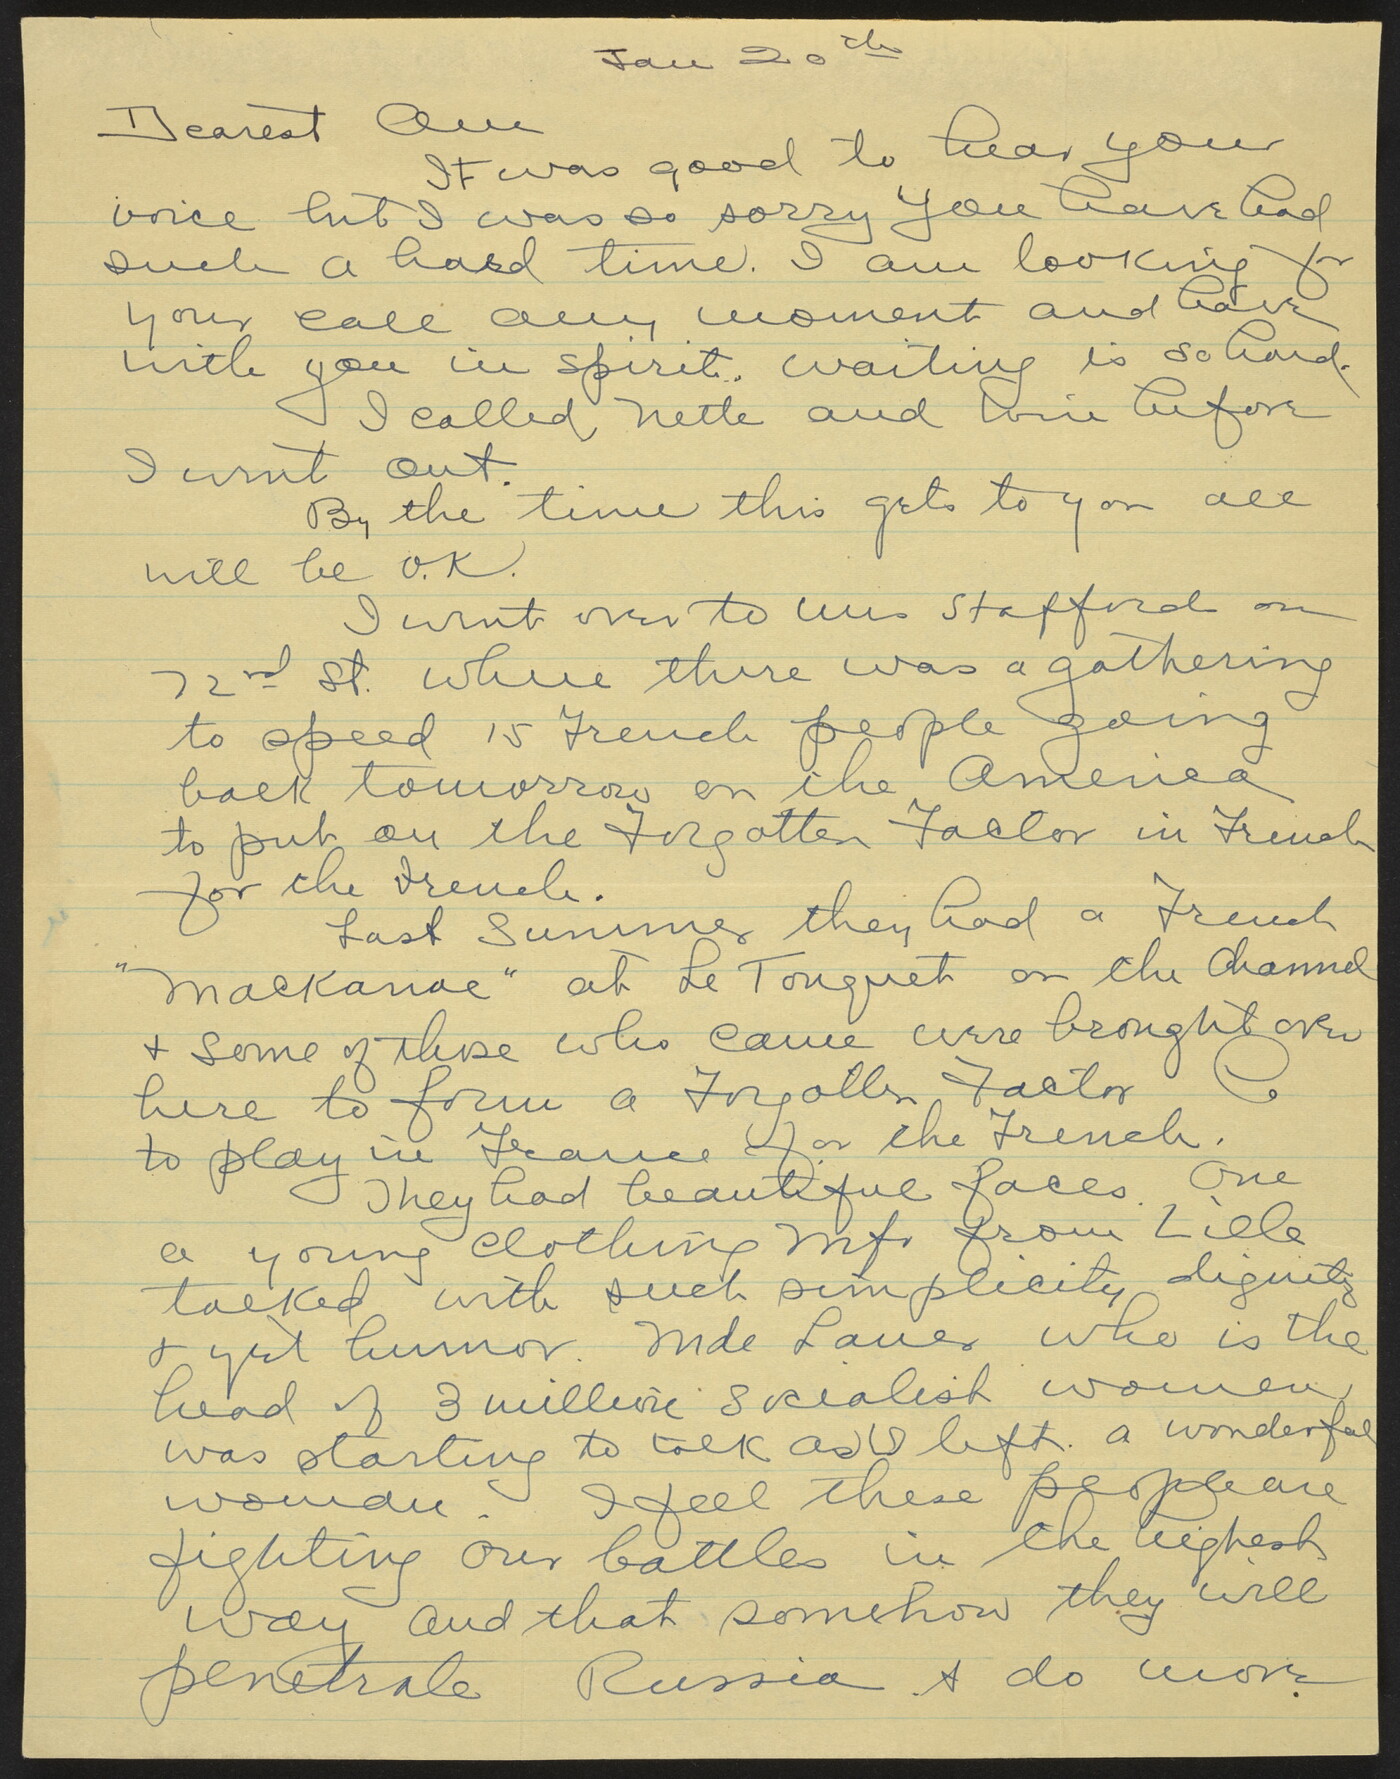 Jan 20th
Dearest Ann
It was good to hear your
voice but I was so sorry you have had
such a hard time. I am looking for
your call any moment and have
with you in spirit. waiting is so hard.
I called Nette and before
I went out.
By the time this gets to you all
will be O.K.
I went over to Mrs Stafford on
72nd St. where there was a gathering
to speed 15 French people going
back tomorrow on the America
to put on the Forgotten Factor in French
for the French.
Last Summer they had a French
"Mackanac" at Le Touquet on the Channel
+ some of those who came were brought over
here to form a Forgotten Factor Co
to play in France for the French.
They had beautiful faces. One
a young clothing Mfr from Lille
talked with such simplicity dignity
+ yet humor. Mde Laver who is the
head of 3 million Socialist women,
was starting to talk as I left. a wonderful
woman. I feel these people are
fighting our battles in the highest
way and that somehow they will
penetrate Russia + do more